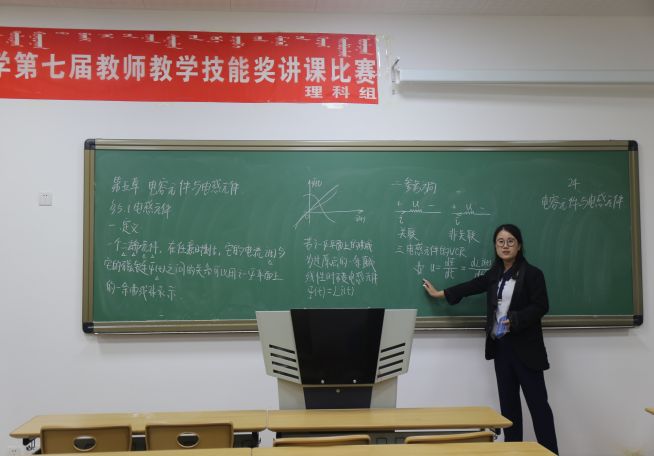 学第七届教师教学技能奖讲课比赛
理科组
第五章 电容元件与电感元件
§5.1电感元件
一.定义
一个二端元件,在任意时刻t,它的电流i(t)与
它的磁链Ψ(t)之间的关系可以用i-Ψ平面上
的一条曲线来表示
若i-Ψ平面上的曲线
为过原点的一条直线
线性时不变电感元件
Ψ(t)=Li(t)
二.参考方向
+ u - + u -
i i
关联 非关联
三.电感元件的VCR
24
电容元件与电感元件